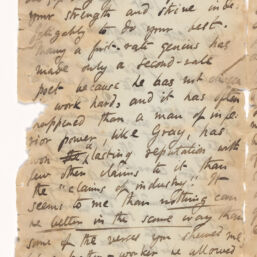 your strength and strive inde-
fatigably to do your best.
Many a first-rate genius has
made only a second-rate
poet because he has not
work hard, and it has often
happened than a man of infe-
rior power, like Gray, has
won a lasting reputation with
few other claims to it than
the "claims of industry". It
seems to me than nothing can
be better in the same way than
some of the verses you shewed me
worker he allowed